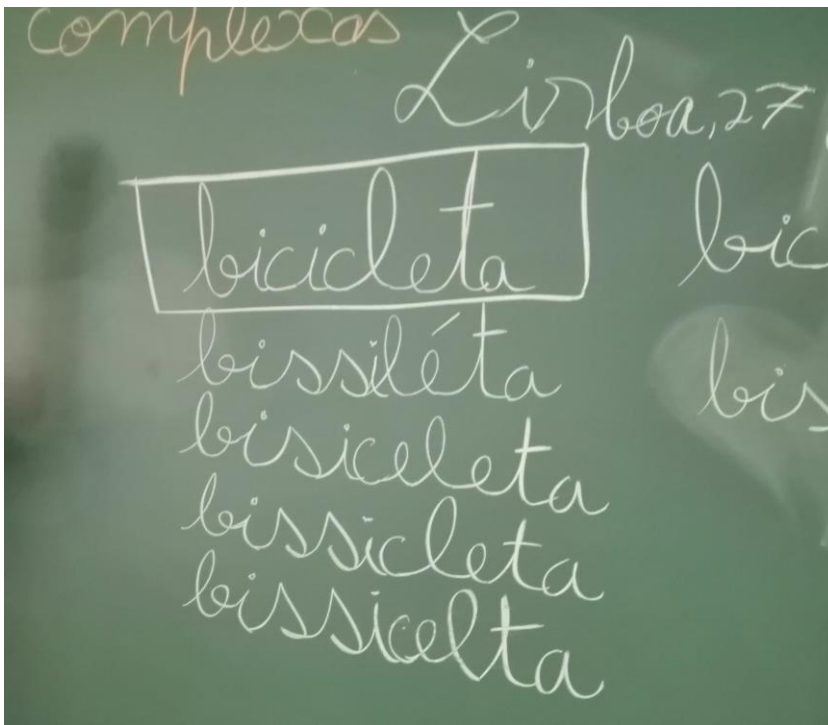 complexas
Lisboa, 27
bicicleta
bic
bissiléta
bis
bisiceleta
bissicleta
bissicelta